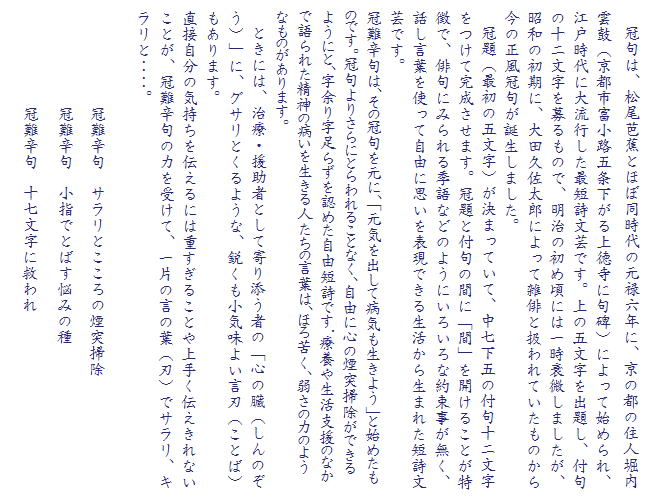 冠句は、松尾芭蕉とほぼ同時代の元禄六年に、京の都の住人堀内
雲鼓（京都市富小路五条下がる上徳寺に句碑）によって始められ、
江戸時代に大流行した最短詩文芸です。上の五文字を出題し、付句
の十二文字を募るもので、明治の初め頃には一時衰微しましたが、
昭和の初期に、太田久佐太郎によって雑俳と扱われていたものから
今の正風冠句が誕生しました。
冠題（最初の五文字）が決まっていて、中七下五の付句十二文字
をつけて完成させます。冠題と付句の間に「間」を開けることが特
徴で、俳句にみられる季語などのようにいろいろな約束事が無く、
話し言葉を使って自由に思いを表現できる生活から生まれた短詩文
芸です。
冠難辛句は、その冠句を元に、「元気を出して病気も生きよう」と始めたも
のです。冠句よりさらにとらわれることなく、自由に心の煙突掃除ができる
ようにと、字余り字足らずを認めた自由短詩です。療養や生活支援のなか
で語られた精神の病いを生きる人たちの言葉は、ほろ苦く、弱さの力のよう
なものがあります。
ときには、治療・援助者として寄り添う者の「心の臓（しんのぞ
う）」に、グサリとくるような、鋭くも小気味よい言刃（ことば）
もあります。
直接自分の気持ちを伝えるには重すぎることや上手く伝えきれない
ことが、冠難辛句の力を受けて、一片の言の葉（刃）でサラリ、キ
ラリと・・・。
冠難辛句　サラリとこころの煙突掃除
冠難辛句　小指でとばす悩みの種
冠難辛句　十七文字に救われ